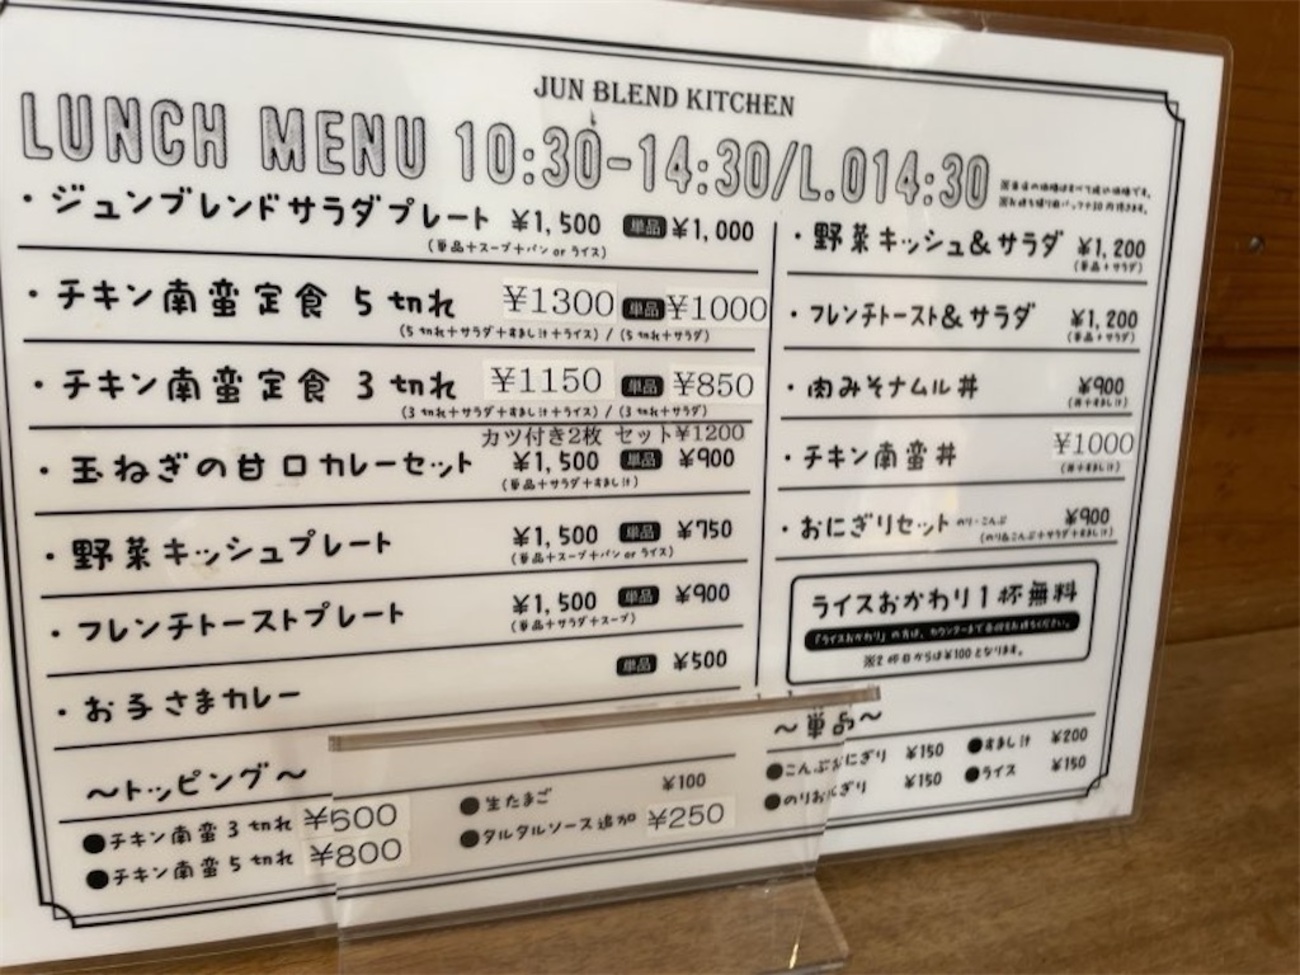 JUN BLEND KITCHEN
LUNCH MENU 10:30-14:30/L.O14:30
※当店の価格はすべて税込価格です。
※お持ち帰り用パック+30円頂きます。
・ジュンブレンドサラダプレート ¥1,500 単品 ¥1,000
(単品+スープ+パン or ライス)
・チキン南蛮定食 5切れ ¥1300 単品 ¥1000
(5切れ+サラダ+すまし汁+ライス) / (5切れ+サラダ)
・チキン南蛮定食 3切れ ¥1150 単品 ¥850
(3切れ+サラダ+すまし汁+ライス) / (3切れ+サラダ)
カツ付き2枚 セット¥1200
・玉ねぎの甘口カレーセット ¥1,500 単品 ¥900
(単品+サラダ+すまし汁)
・野菜キッシュプレート ¥1,500 単品 ¥750
(単品+スープ+パン or ライス)
・フレンチトーストプレート ¥1,500 単品 ¥900
(単品+サラダ+スープ)
・お子さまカレー 単品 ¥500
・野菜キッシュ&サラダ ¥1,200
(単品+サラダ)
・フレンチトースト&サラダ ¥1,200
(単品+サラダ)
・肉みそナムル丼 ¥900
(丼+すまし汁)
・チキン南蛮丼 ¥1000
(丼+すまし汁)
・おにぎりセット のり・こんぶ ¥900
(のり&こんぶ+サラダ+すまし汁)
ライスおかわり1杯無料
「ライスおかわり」の方は、カウンターまでお持ちください。
※2杯目からは¥100となります。
〜トッピング〜
●チキン南蛮3切れ ¥600
●チキン南蛮5切れ ¥800
●生たまご ¥100
●タルタルソース追加 ¥250
〜単品〜
●こんぶおにぎり ¥150
●のりおにぎり ¥150
●すまし汁 ¥200
●ライス ¥150